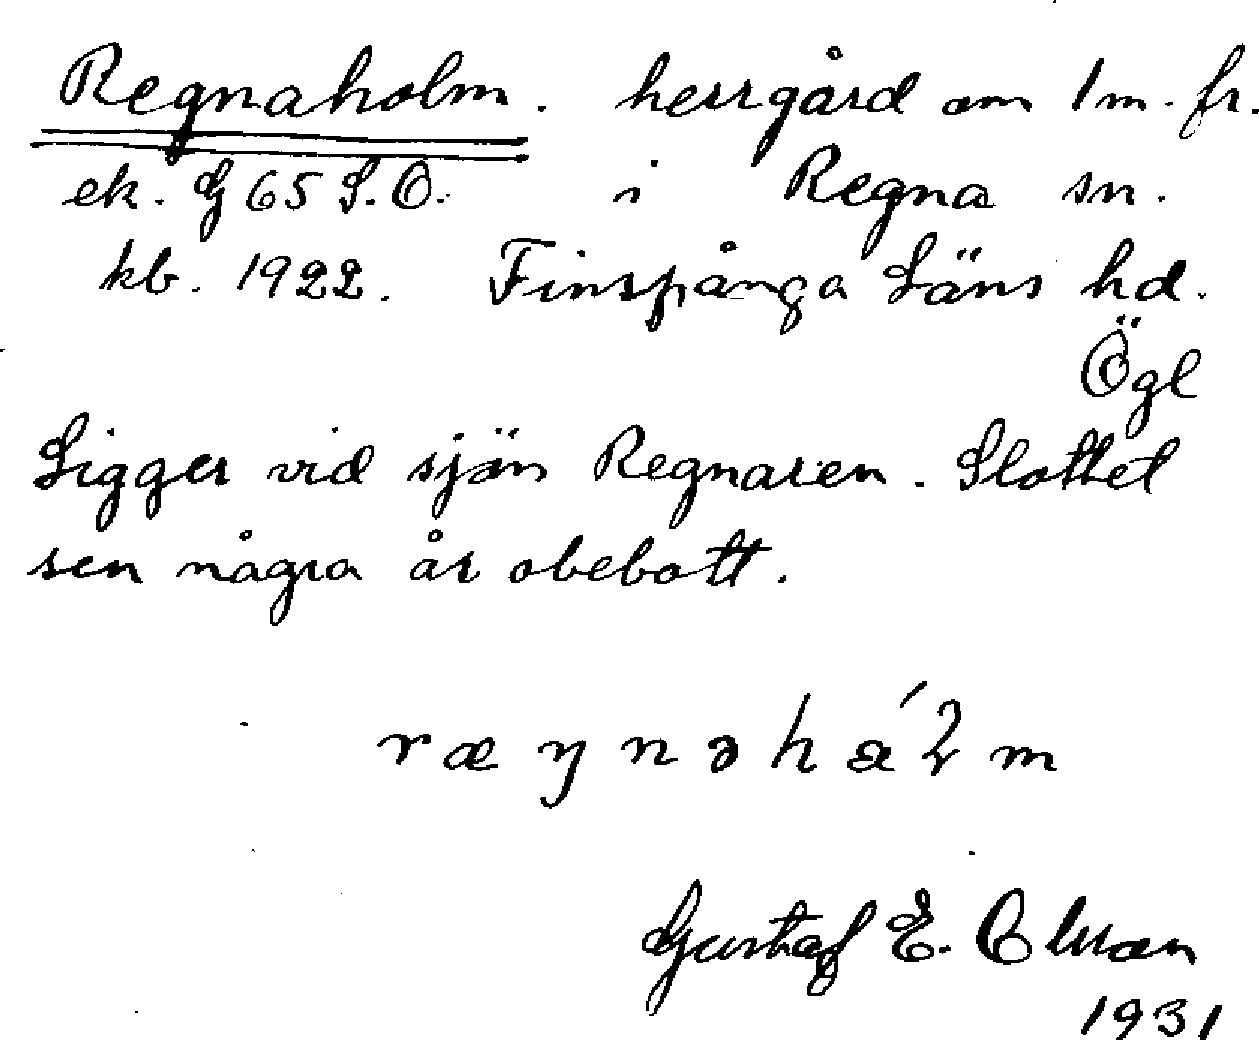 Regnaholm. herrgård om 1 m. fr.
ek. G 65 S.O. i Regna sn.
kb. 1922. Finspånga Läns hd.
Ögl
Ligger vid sjön Regnaren. Slottet
sen några år obebott.
ræŋnəhá2m
Gustaf E.
1931